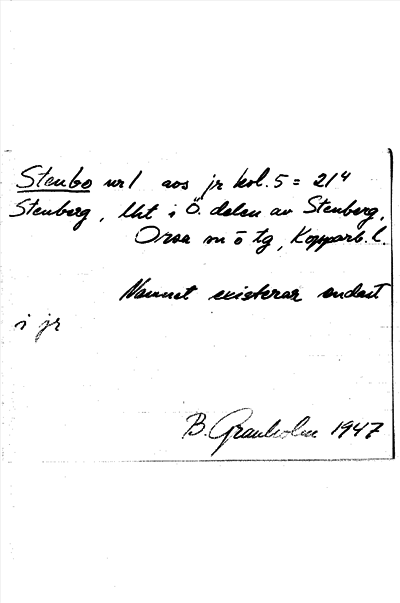 Stenbo nr 1 avs jr kol. 5 = 21⁴
Stenberg, lht i Ö. delen av Stenberg,
Orsa sn ö tg, Kopparb. l.
Namnet existerar endast
i jr
B. Granholm 1947